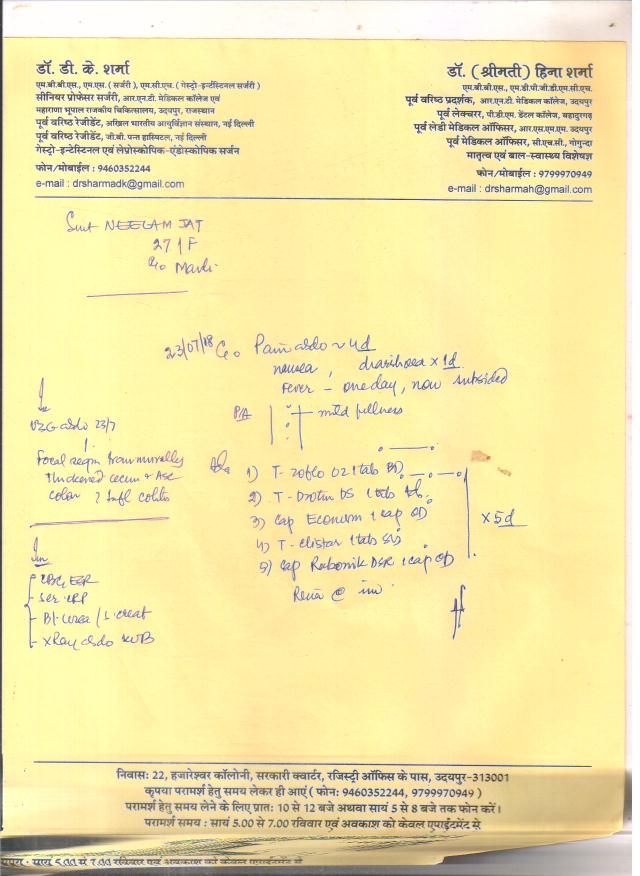 डॉ. डी. के. शर्मा
एम.बी.बी.एस., एम.एस. ( सर्जरी ), एम.सी.एच. ( गेस्ट्रो-इन्टेंस्टिनल सर्जरी )
सीनियर प्रोफेसर सर्जरी, आर.एन.टी. मेडिकल कॉलेज एवं
महाराणा भूपाल राजकीय चिकित्सालय, उदयपुर, राजस्थान
पूर्व वरिष्ठ रेजीडेंट, अखिल भारतीय आयुर्विज्ञान संस्थान, नई दिल्ली
पूर्व वरिष्ठ रेजीडेंट, जी.बी. पन्त हास्पिटल, नई दिल्ली
गेस्ट्रो-इन्टेस्टिनल एवं लेप्रोस्कोपिक-एंडोस्कोपिक सर्जन
फोन/मोबाईल : 9460352244
e-mail : drsharmadk@gmail.com
डॉ. (श्रीमती) हिना शर्मा
एम.बी.बी.एस., एम.डी.पी.जी.डी.एम.सी.एच.
पूर्व वरिष्ठ प्रदर्शक, आर.एन.टी. मेडिकल कॉलेज, उदयपुर
पूर्व लेक्चरर, पी.डी.एम. डेंटल कॉलेज, बहादुरगढ़
पूर्व लेडी मेडिकल ऑफिसर, आर.एस.एम.एम. उदयपुर
पूर्व मेडिकल ऑफिसर, सी.एच.सी., गोगुन्दा
मातृत्व एवं बाल-स्वास्थ्य विशेषज्ञ
फोन/मोबाईल : 9799970949
e-mail : drsharmah@gmail.com
Smt NEELAM JAT
27 / F
23/07/18 C/o Pain abdo ~ 4d
nausea, diarrhoea x 1d
Fever - one day, now subsided
P/A mild fullness
USG abdo 23/7
Focal segm transmurally
thickened cecum + Asc
colon ? Infl colitis
Adv
1) T- Zoflo OZ 1 tab BD
2) T- Drotin DS 1 tab
3) Cap Econorm 1 cap OD
4) T-
5) Cap DSR 1 cap OD
x 5d
Inv
CBC, ESR
Ser CRP
Bl. urea / S. creat
XRay abdo KUB
निवास: 22, हजारेश्वर कॉलोनी, सरकारी क्वार्टर, रजिस्ट्री ऑफिस के पास, उदयपुर-313001
कृपया परामर्श हेतु समय लेकर ही आएं ( फोन: 9460352244, 9799970949 )
परामर्श हेतु समय लेने के लिए प्रात: 10 से 12 बजे अथवा सायं 5 से 8 बजे तक फोन करें।
परामर्श समय : सायं 5.00 से 7.00 रविवार एवं अवकाश को केवल एपाईंटमेंट से